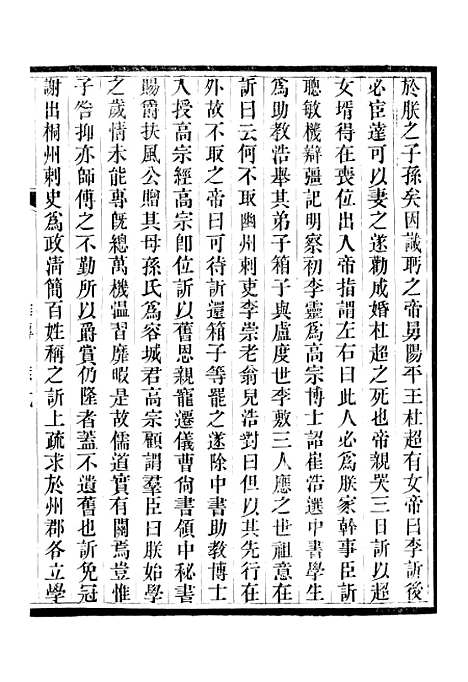 於朕之子孫矣因識聘之帝舅陽平王杜超有女帝曰李訢後
必宦達可以妻之遂勸成婚杜超之死也帝親哭三日訢以超
女壻得在喪位出入帝指謂左右曰此人必爲朕家幹事臣訢
聰敏機辯彊記明察初李靈爲高宗博士詔崔浩選中書學生
爲助教浩舉其弟子箱子與盧度世李敷三人應之世祖意在
訢曰云何不取幽州刺史李崇老翁兒浩對曰但以其先行在
外故不取之帝曰可待訢還箱子等罷之遂除中書助教博士
入授高宗經高宗卽位訢以舊恩親寵遷儀曹尙書領中秘書
賜爵扶風公贈其母孫氏爲容城君高宗顧謂羣臣曰朕始學
之歲情未能專旣總萬機温習靡暇是故儒道實有闕焉豈惟
子咎抑亦師傅之不勤所以爵賞仍隆者葢不遺舊也訢免冠
謝出相州刺史爲政清簡百姓稱之訢上疏求於州郡各立學